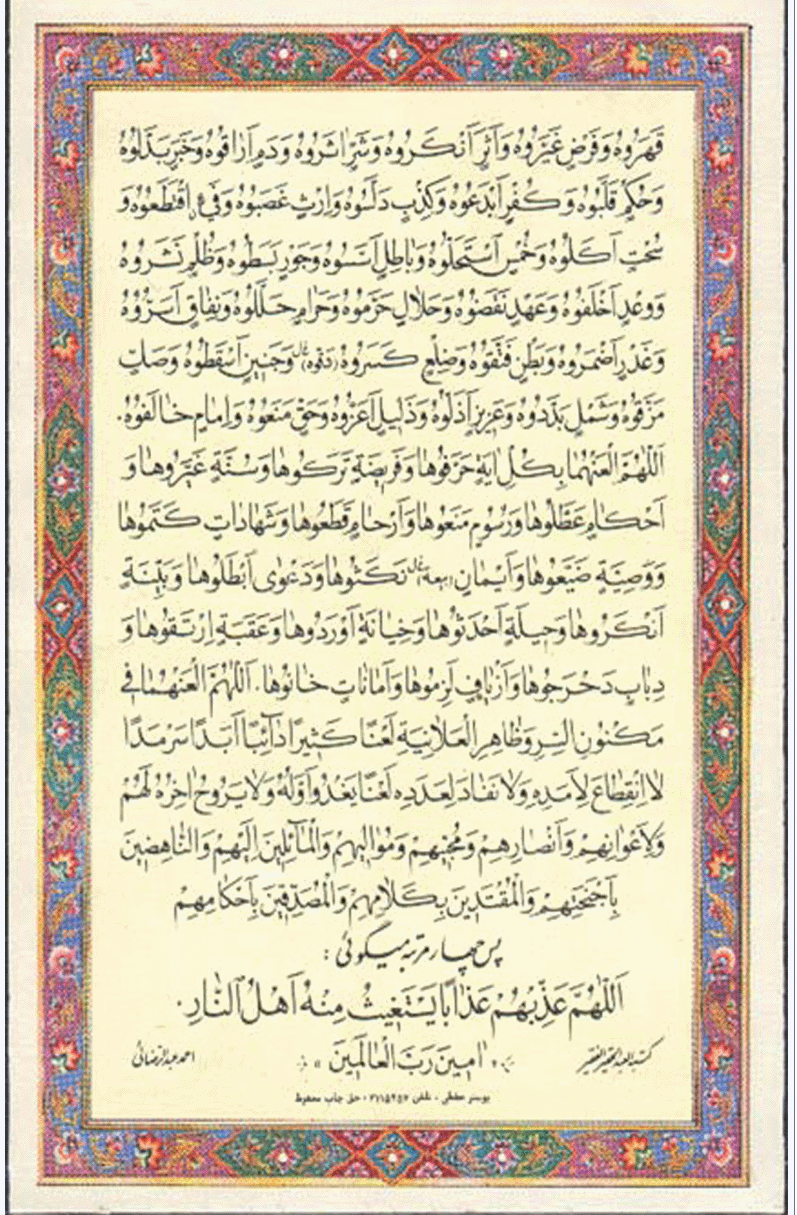 قَهَرُوهُ وَفَرْضٍ غَيَّرُوهُ وَآثَرٍ آنْكَرُوهُ وَشَرٍّ اثَرُوهُ وَدَمٍ آرَاقُوهُ وَخَبَرٍ بَدَّلُوهُ
وَحُكْمٍ قَلَّبُوهُ وَكُفْرٍ آبْدَعُوهُ وَكِذْبٍ دَلَّسُوهُ وَاِرْثٍ غَصَبُوهُ وَفَیْءٍ اقْتَطَعُوهُ وَ
سُحْتٍ آكَلُوهُ وَخُمْسٍ آسْتَحَلُّوهُ وَبَاطِلٍ آسَّسُوهُ وَجَوْرٍ بَسَطُوهُ وَظُلْمٍ نَشَرُوهُ
وَوَعْدٍ آخْلَفُوهُ وَعَهْدٍ نَقَضُوهُ وَحَلَالٍ حَرَّمُوهُ وَحَرَامٍ حَلَّلُوهُ وَنِفَاقٍ آسَرُّوهُ
وَغَدْرٍ آضْمَرُوهُ وَبَطْنٍ فَتَقُوهُ وَضِلْعٍ كَسَرُوهُ (دقوه) وَجَنِينٍ آسْقَطُوهُ وَصَكٍّ
مَزَّقُوهُ وَشَمْلٍ بَدَّدُوهُ وَعَزِيزٍ آذَلُّوهُ وَذَلِيلٍ آعَزُّوهُ وَحَقٍّ مَنَعُوهُ وَاِمَامٍ خَالَفُوهُ.
آللّٰهُمَّ الْعَنْهُمَا بِكُلِّ ايَةٍ حَرَّفُوهَا وَفَرِيضَةٍ تَرَكُوهَا وَسُنَّةٍ غَيَّرُوهَا وَ
آحْكَامٍ عَطَّلُوهَا وَرُسُومٍ مَنَعُوهَا وَآرْحَامٍ قَطَعُوهَا وَشَهَادَاتٍ كَتَمُوهَا
وَوَصِيَّةٍ ضَيَّعُوهَا وَآيْمَانٍ نَكَثُوهَا وَدَعْوٰى آبْطَلُوهَا وَبَيِّنَةٍ
آنْكَرُوهَا وَحِيلَةٍ آحْدَثُوهَا وَخِيَانَةٍ آوْرَدُوهَا وَعَقَبَةٍ اِرْتَقُوهَا وَ
دِبَابٍ دَحْرَجُوهَا وَآزْيَافٍ لَزِمُوهَا وَآمَانَاتٍ خَانُوهَا. آللّٰهُمَّ الْعَنْهُمَا فِي
مَكْنُونِ السِّرِّ وَظَاهِرِ الْعَلَانِيَةِ لَعْنًا كَثِيرًا دَآئِبًا آبَدًا سَرْمَدًا
لَا انْقِطَاعَ لِآمَدِهِ وَلَا نَفَادَ لِعَدَدِهِ لَعْنًا يَغْدُو آوَّلُهُ وَلَا يَرُوحُ اخِرُهُ لَهُمْ
وَلِآعْوَانِهِمْ وَآنْصَارِهِمْ وَمُحِبِّيهِمْ وَمُوَالِيهِمْ وَالْمَآئِلِينَ اِلَيْهِمْ وَالنَّاهِضِينَ
بِآجْنِحَتِهِمْ وَالْمُقْتَدِينَ بِكَلَامِهِمْ وَالْمُصَدِّقِينَ بِآحْكَامِهِمْ
پس چهار مرتبه میگوئی :
آللّٰهُمَّ عَذِّبْهُمْ عَذَابًا يَسْتَغِيثُ مِنْهُ آهْلُ النَّارِ.
امِينَ رَبَّ الْعَالَمِينَ
کتبه العبد الحقیر الفقیر
پوستر حقیقی ـ تلفن ـ حق چاپ محفوظ